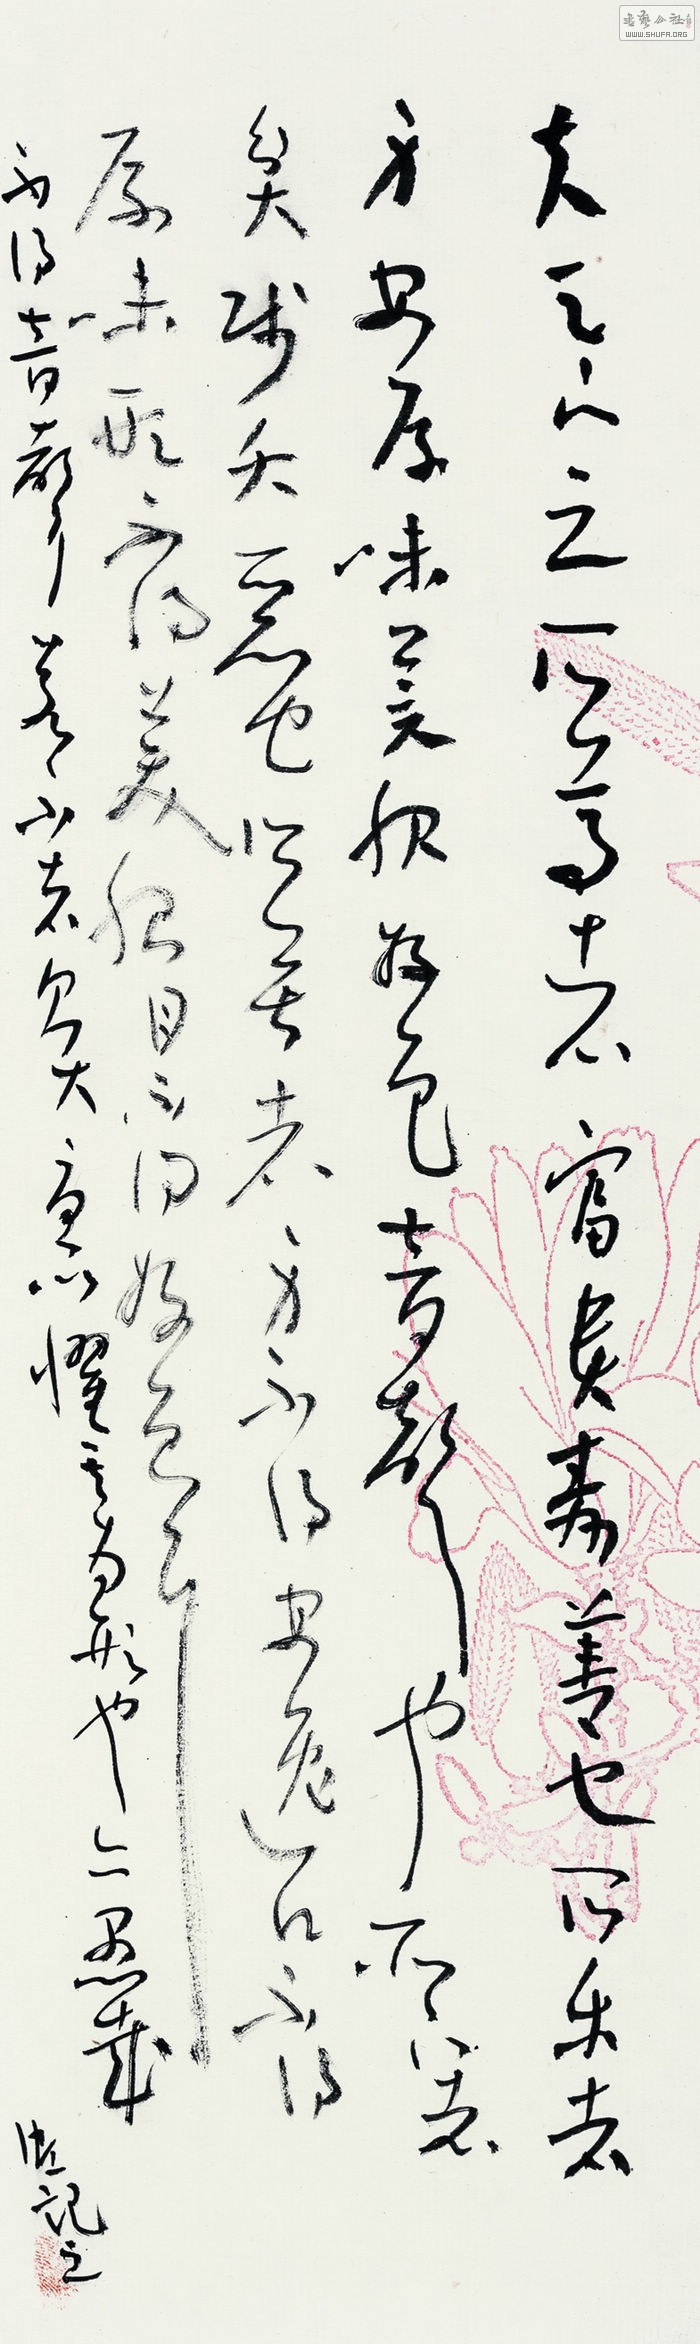 夫天下之所尊者富贵寿善也所乐者
身安厚味美服好色音声也所下者
贫贱夭恶也所苦者身不得安逸口不得
厚味形不得美服目不得好色耳
不得音声若不者则大忧以惧其为形也亦愚哉
记之
书艺公社
WWW.SHUFA.ORG